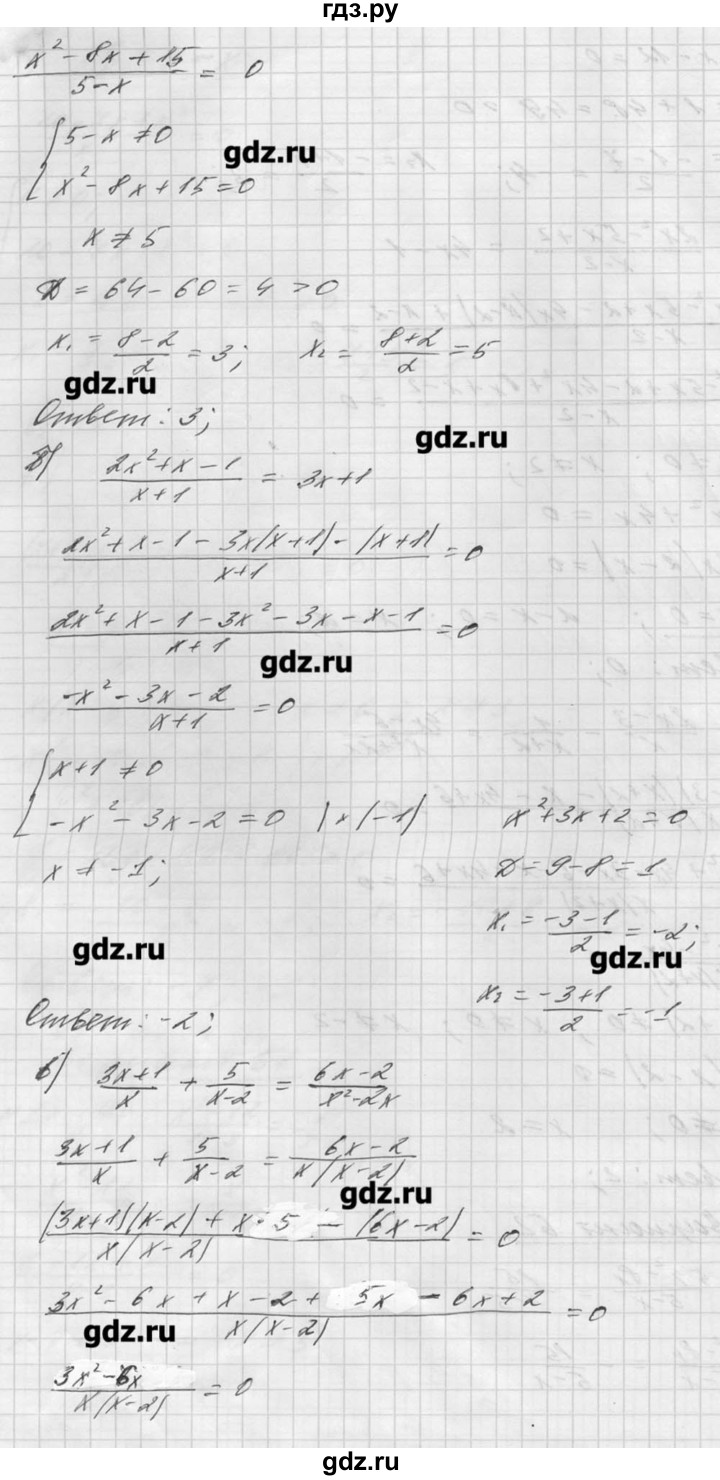 гдз.ру
(x² - 8x + 15)/(5-x) = 0
{ 5-x ≠ 0
x² - 8x + 15 = 0
gdz.ru
x ≠ 5
D = 64 - 60 = 4 > 0
x₁ = (8-2)/2 = 3; x₂ = (8+2)/2 = 5
gdz.ru
Ответ: 3;
gdz.ru
б) (2x²+x-1)/(x+1) = 3x+1
(2x²+x-1-3x(x+1)-(x+1))/(x+1) = 0
(2x²+x-1-3x²-3x-x-1)/(x+1) = 0
gdz.ru
(-x²-3x-2)/(x+1) = 0
{ x+1 ≠ 0
-x²-3x-2 = 0 |×(-1) x²+3x+2 = 0
x ≠ -1; D = 9-8 = 1
x₁ = (-3-1)/2 = -2;
gdz.ru
gdz.ru
x₂ = (-3+1)/2 = -1
Ответ: -2;
в) (3x+1)/x + 5/(x-2) = (6x-2)/(x²-2x)
(3x+1)/x + 5/(x-2) = (6x-2)/(x(x-2))
gdz.ru
((3x+1)(x-2)+x·5-(6x-2))/(x(x-2)) = 0
(3x²-6x+x-2+5x-6x+2)/(x(x-2)) = 0
gdz.ru
(3x²-6x)/(x(x-2)) = 0
gdz.ru